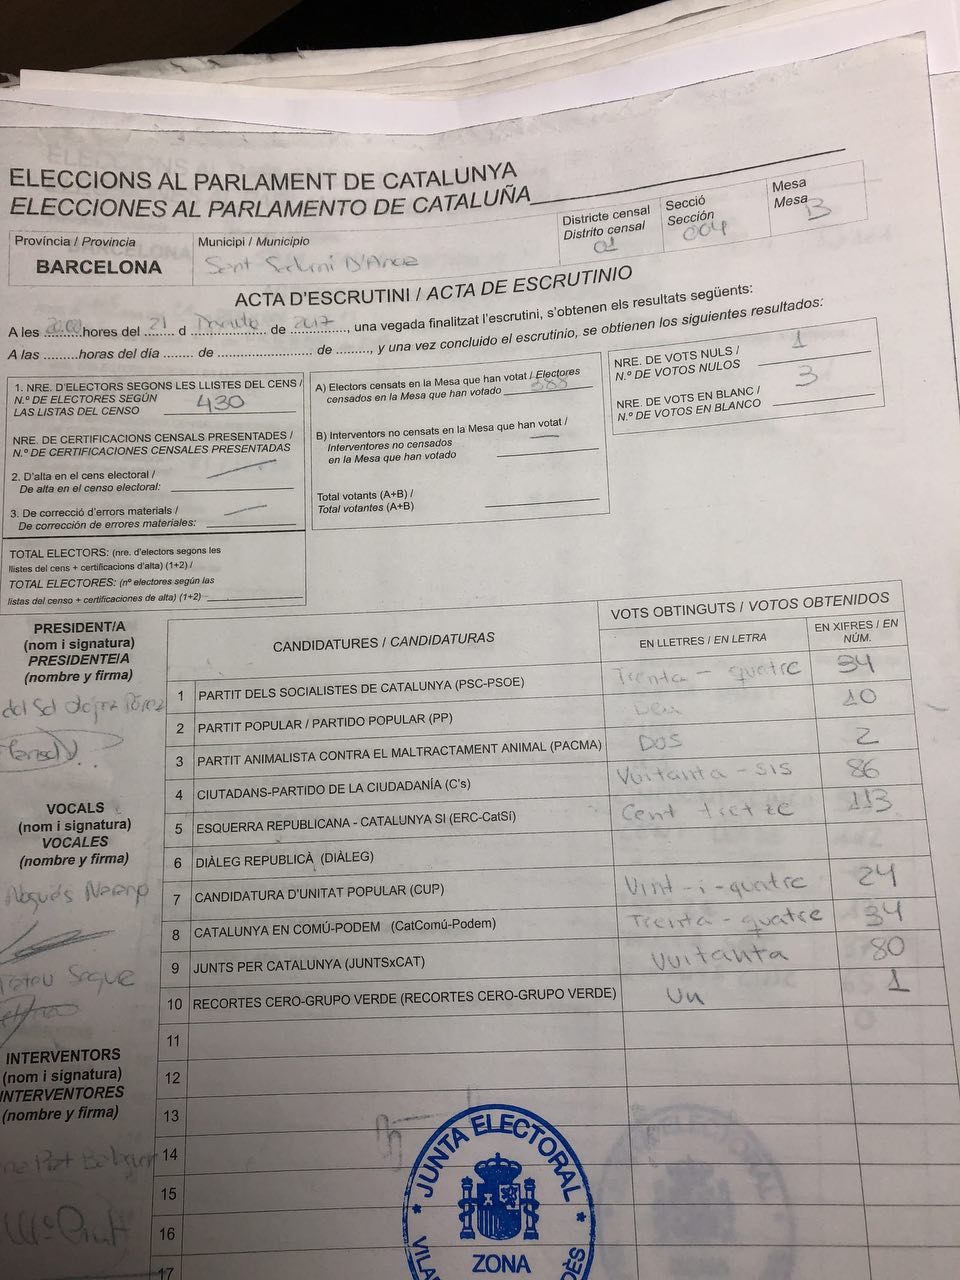 ELECCIONS AL PARLAMENT DE CATALUNYA
ELECCIONES AL PARLAMENTO DE CATALUÑA
Província / Provincia
BARCELONA
Municipi / Municipio
Sant Sadurní D'Anoia
Districte censal
Distrito censal
01
Secció
Sección
004
Mesa
Mesa
B
ACTA D'ESCRUTINI / ACTA DE ESCRUTINIO
A les hores del 21 d de 2017, una vegada finalitzat l'escrutini, s'obtenen els resultats següents:
A las .........horas del día ........ de .............................. de ........., y una vez concluido el escrutinio, se obtienen los siguientes resultados:
1. NRE. D'ELECTORS SEGONS LES LLISTES DEL CENS /
N.º DE ELECTORES SEGÚN
LAS LISTAS DEL CENSO 430
NRE. DE CERTIFICACIONS CENSALS PRESENTADES /
N.º DE CERTIFICACIONES CENSALES PRESENTADAS
2. D'alta en el cens electoral /
De alta en el censo electoral:
3. De correcció d'errors materials /
De corrección de errores materiales:
TOTAL ELECTORS: (nre. d'electors segons les
llistes del cens + certificacions d'alta) (1+2) /
TOTAL ELECTORES: (nº electores según las
listas del censo + certificaciones de alta) (1+2)
A) Electors censats en la Mesa que han votat / Electores
censados en la Mesa que han votado 388
B) Interventors no censats en la Mesa que han votat /
Interventores no censados
en la Mesa que han votado
Total votants (A+B) /
Total votantes (A+B)
NRE. DE VOTS NULS /
N.º DE VOTOS NULOS 1
NRE. DE VOTS EN BLANC /
N.º DE VOTOS EN BLANCO 3
PRESIDENT/A
(nom i signatura)
PRESIDENTE/A
(nombre y firma)
del Sol López Pérez
VOCALS
(nom i signatura)
VOCALES
(nombre y firma)
Nogués
INTERVENTORS
(nom i signatura)
INTERVENTORES
(nombre y firma)
CANDIDATURES / CANDIDATURAS
VOTS OBTINGUTS / VOTOS OBTENIDOS
EN LLETRES / EN LETRA
EN XIFRES / EN NÚM.
1 PARTIT DELS SOCIALISTES DE CATALUNYA (PSC-PSOE) Trenta-quatre 34
2 PARTIT POPULAR / PARTIDO POPULAR (PP) Deu 10
3 PARTIT ANIMALISTA CONTRA EL MALTRACTAMENT ANIMAL (PACMA) DOS 2
4 CIUTADANS-PARTIDO DE LA CIUDADANÍA (C's) Vuitanta-sis 86
5 ESQUERRA REPUBLICANA - CATALUNYA SI (ERC-CatSí) Cent tretze 113
6 DIÀLEG REPUBLICÀ (DIÀLEG)
7 CANDIDATURA D'UNITAT POPULAR (CUP) Vint-i-quatre 24
8 CATALUNYA EN COMÚ-PODEM (CatComú-Podem) Trenta-quatre 34
9 JUNTS PER CATALUNYA (JUNTSxCAT) Vuitanta 80
10 RECORTES CERO-GRUPO VERDE (RECORTES CERO-GRUPO VERDE) Un 1
11
12
13
14
15
16
17
JUNTA ELECTORAL
ZONA